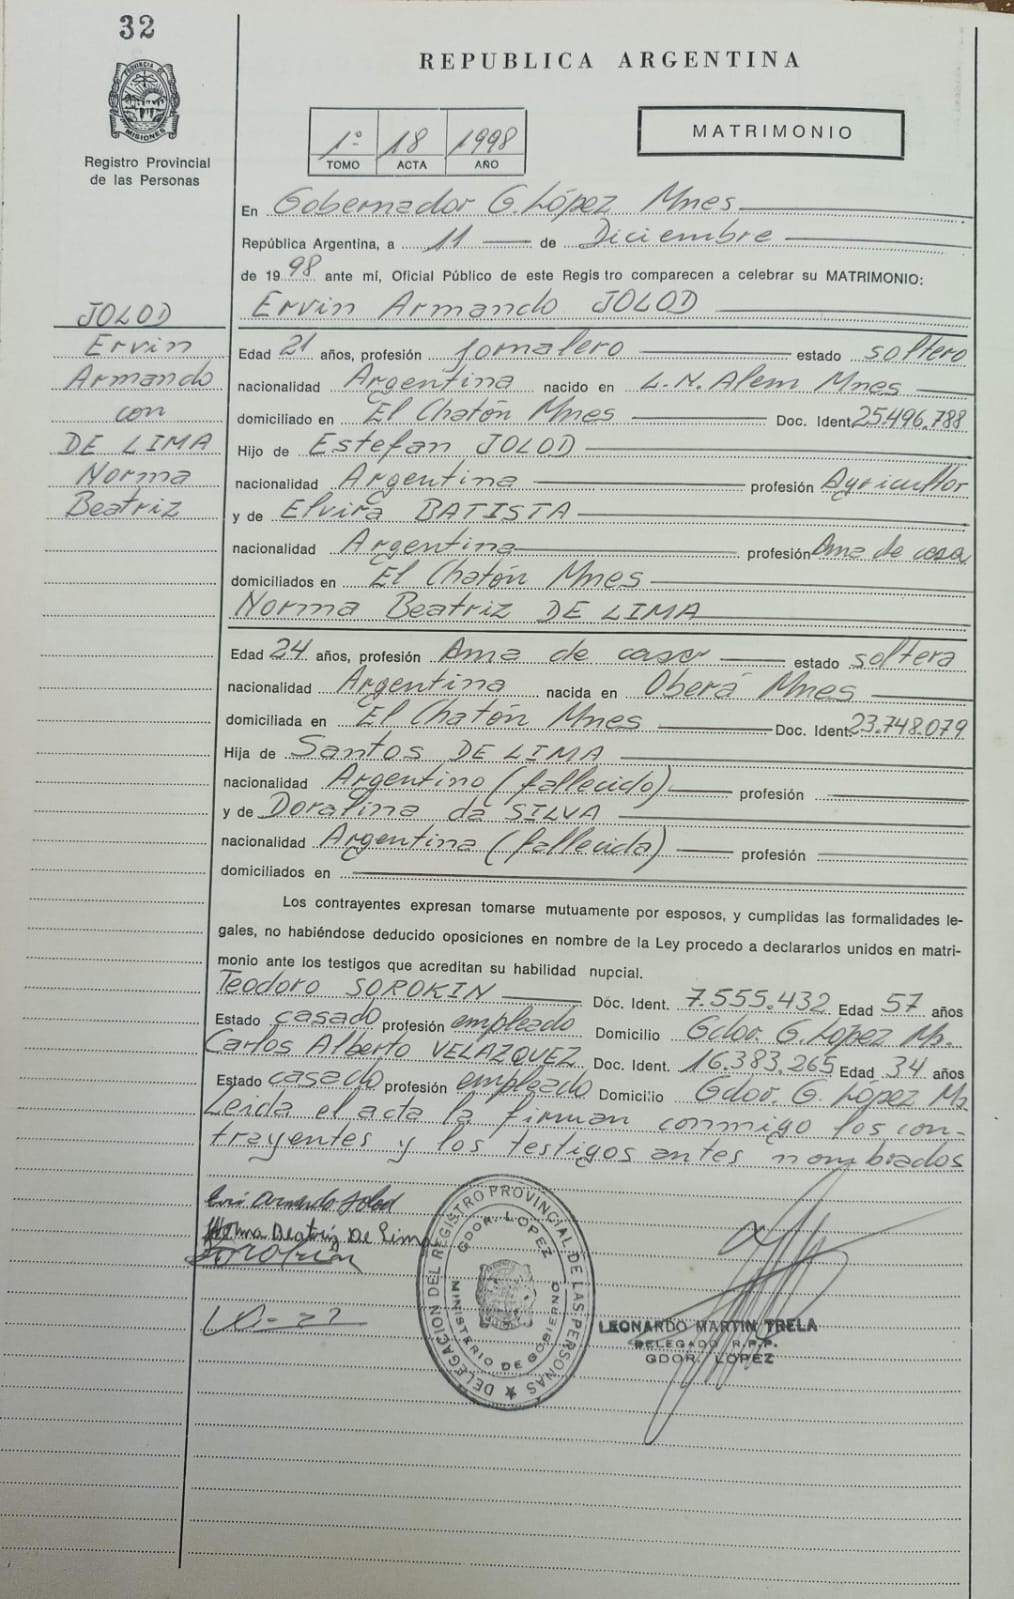 32
PROVINCIA DE
MISIONES
Registro Provincial
de las Personas
REPUBLICA ARGENTINA
1º 18 1998
TOMO ACTA AÑO
MATRIMONIO
En Gobernador G. López Mnes
República Argentina, a 11 de Diciembre
de 1998 ante mí, Oficial Público de este Registro comparecen a celebrar su MATRIMONIO:
Ervin Armando JOLOD
JOLOD
Ervin
Armando
con
DE LIMA
Norma
Beatriz
Edad 21 años, profesión Jornalero estado soltero
nacionalidad Argentina nacido en L.N. Alem Mnes
domiciliado en El Chatón Mnes Doc. Ident. 25.496.788
Hijo de Estefan JOLOD
nacionalidad Argentina profesión Agricultor
y de Elvira BATISTA
nacionalidad Argentina profesión Ama de casa
domiciliados en El Chatón Mnes
Norma Beatriz DE LIMA
Edad 24 años, profesión Ama de casa estado soltera
nacionalidad Argentina nacida en Oberá Mnes
domiciliada en El Chatón Mnes Doc. Ident. 23.748.079
Hija de Santos DE LIMA
nacionalidad Argentino (fallecido) profesión
y de Doralina da SILVA
nacionalidad Argentina (fallecida) profesión
domiciliados en
Los contrayentes expresan tomarse mutuamente por esposos, y cumplidas las formalidades le-
gales, no habiéndose deducido oposiciones en nombre de la Ley procedo a declararlos unidos en matri-
monio ante los testigos que acreditan su habilidad nupcial.
Teodoro SOROKIN Doc. Ident. 7.555.432 Edad 57 años
Estado casado profesión empleado Domicilio Gdor. G. López Mn.
Carlos Alberto VELAZQUEZ Doc. Ident. 16.383.265 Edad 34 años
Estado casado profesión empleado Domicilio Gdor. G. López Mn
Leida el acta la firman conmigo los con-
trayentes y los testigos antes nombrados
Armando Jolod
Norma Beatriz De Lima
DELEGACION DEL REGISTRO PROVINCIAL DE LAS PERSONAS
GDOR. LOPEZ
MINISTERIO DE GOBIERNO
LEONARDO MARTIN TRELA
DELEGADO R.P.P.
GDOR. LOPEZ